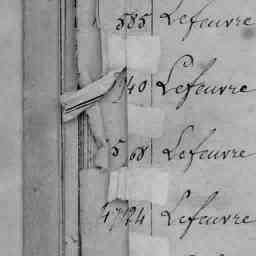 585 Lefeuvre
40 Lefeuvre
5 68 Lefeuvre
4724 Lefeuvre